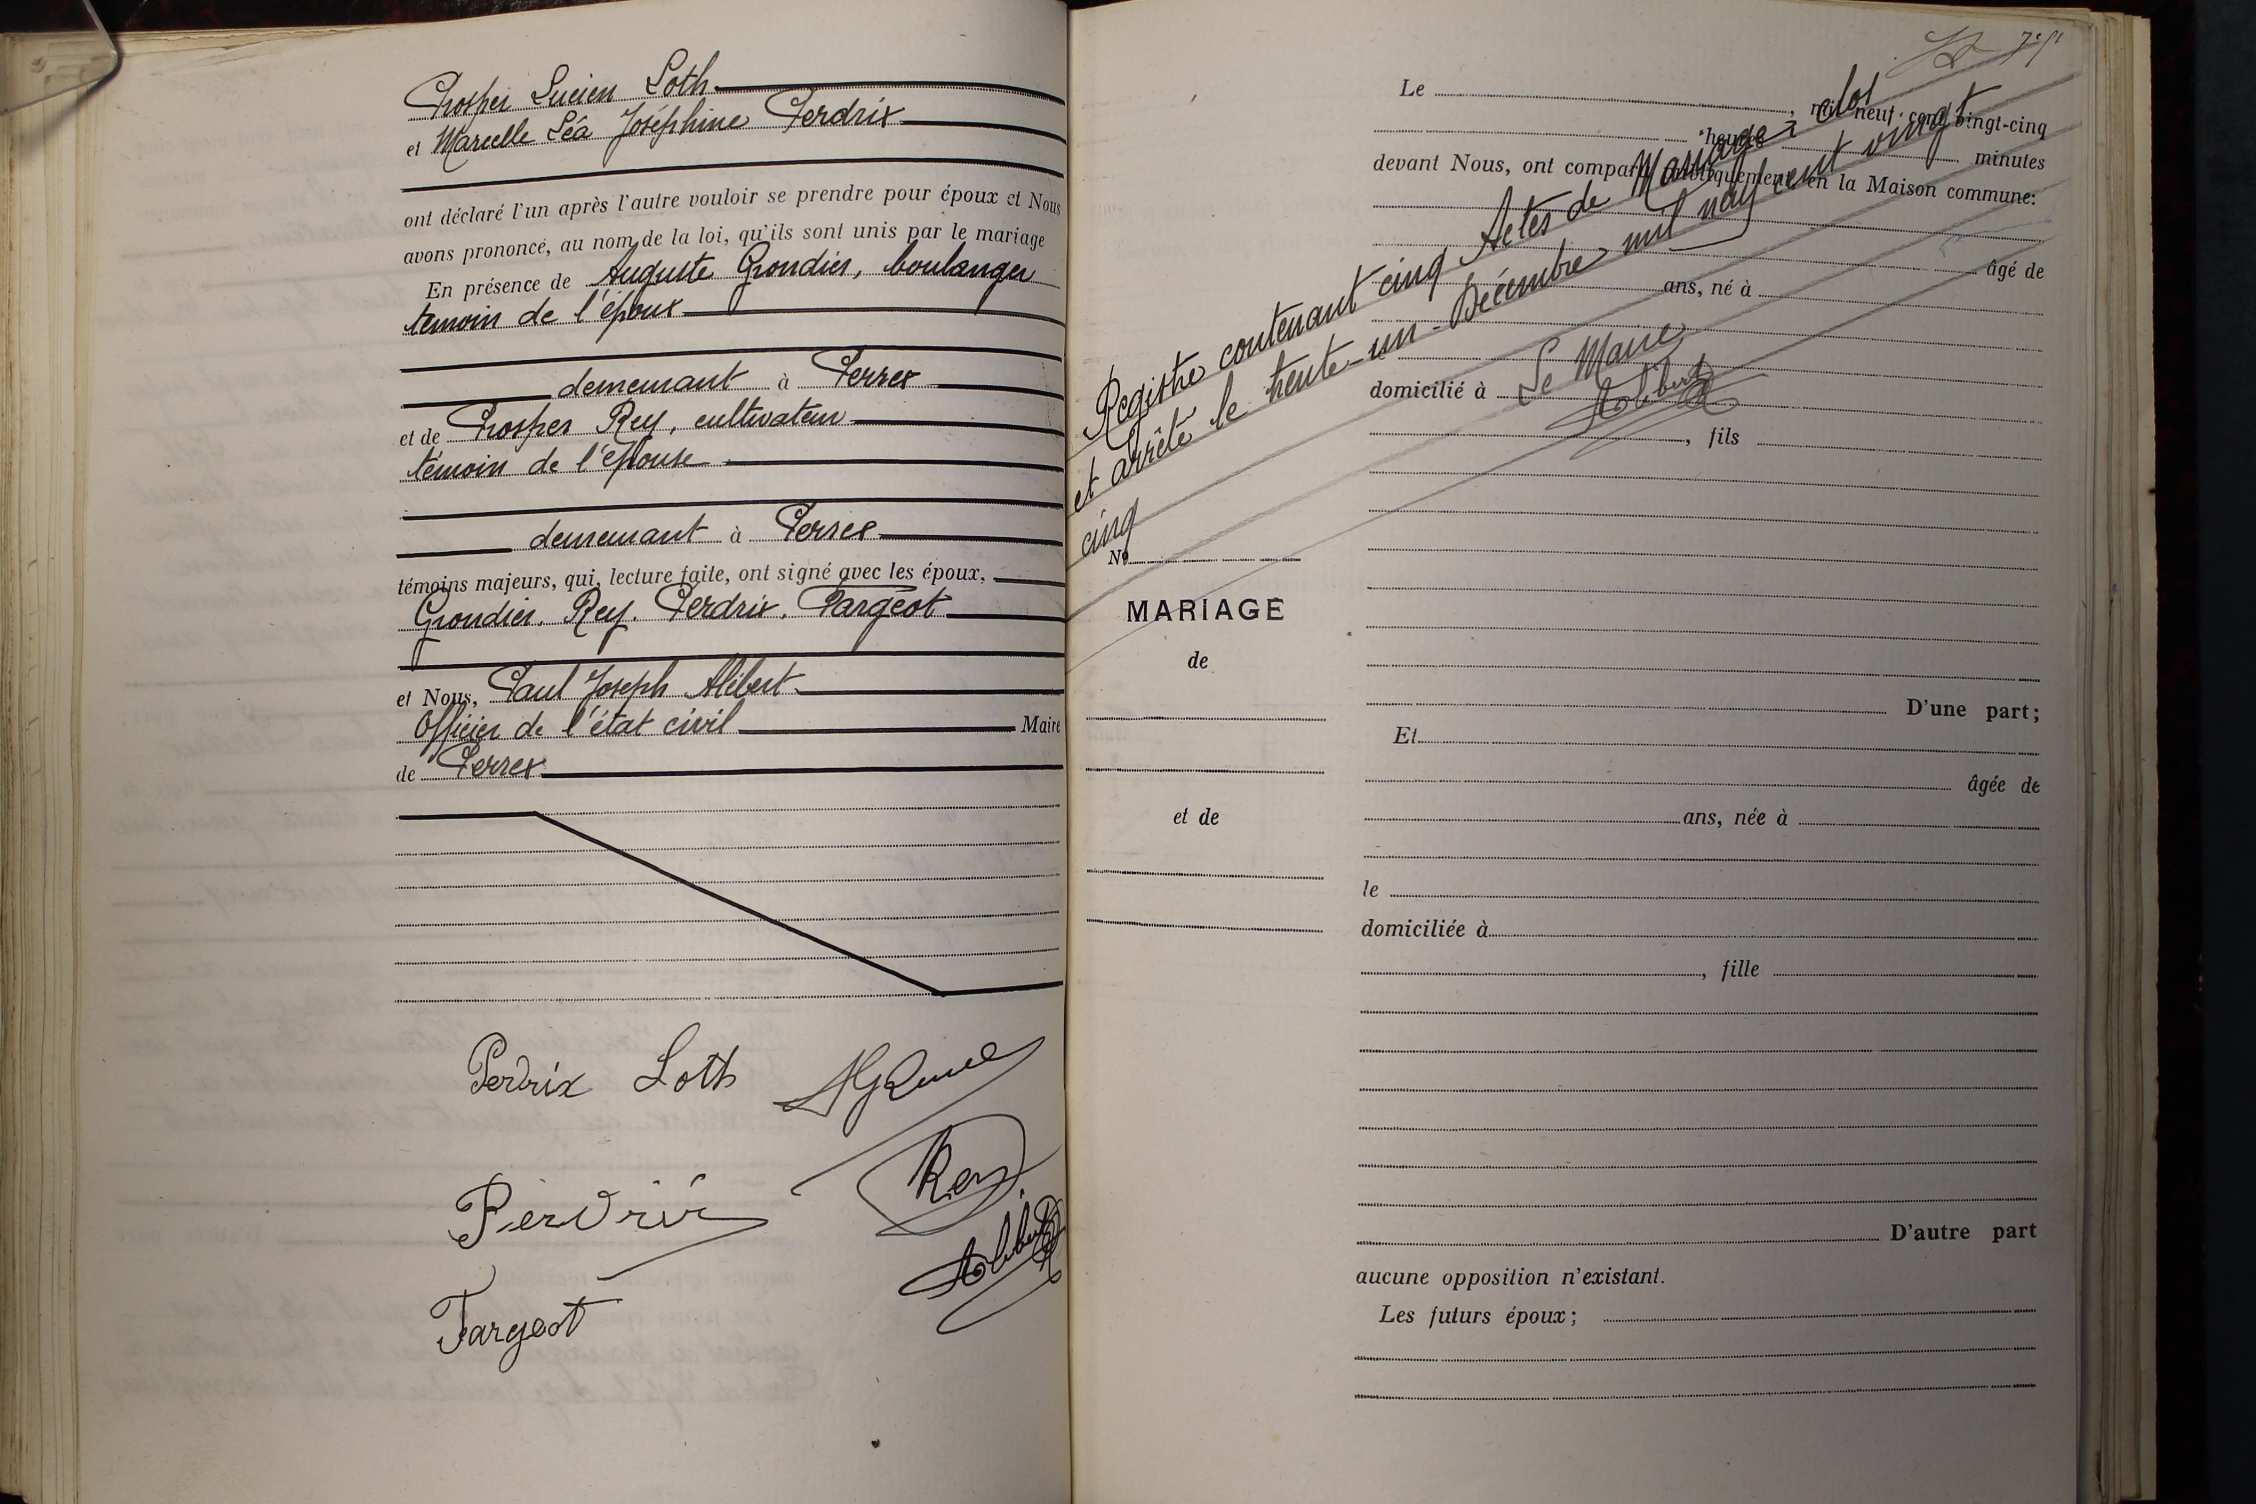 Prosper Lucien Loth
et Marcelle Léa Joséphine Perdrix
ont déclaré l'un après l'autre vouloir se prendre pour époux et Nous
avons prononcé, au nom de la loi, qu'ils sont unis par le mariage
En présence de Auguste Grondier, boulanger
témoin de l'époux
demeurant à Perrex
et de Prosper Rey, cultivateur
témoin de l'épouse
demeurant à Perrex
témoins majeurs, qui, lecture faite, ont signé avec les époux,
Grondier. Rey. Perdrix. Fargeot
et Nous, Paul Joseph Alibert
Officier de l'état civil Maire
de Perrex
Perdrix Loth
Rey
Perdrix
Alibert
Fargeot
Le , mil neuf cent vingt-cinq
heures minutes
devant Nous, ont comparu publiquement en la Maison commune:
âgé de
ans, né à
domicilié à
, fils
Registre contenant cinq Actes de Mariage, clos
et arrêté le trente-un Décembre mil neuf cent vingt
cinq
Le Maire
Alibert
No
MARIAGE
de
et de
D'une part;
Et
âgée de
ans, née à
le
domiciliée à
, fille
D'autre part
aucune opposition n'existant.
Les futurs époux;